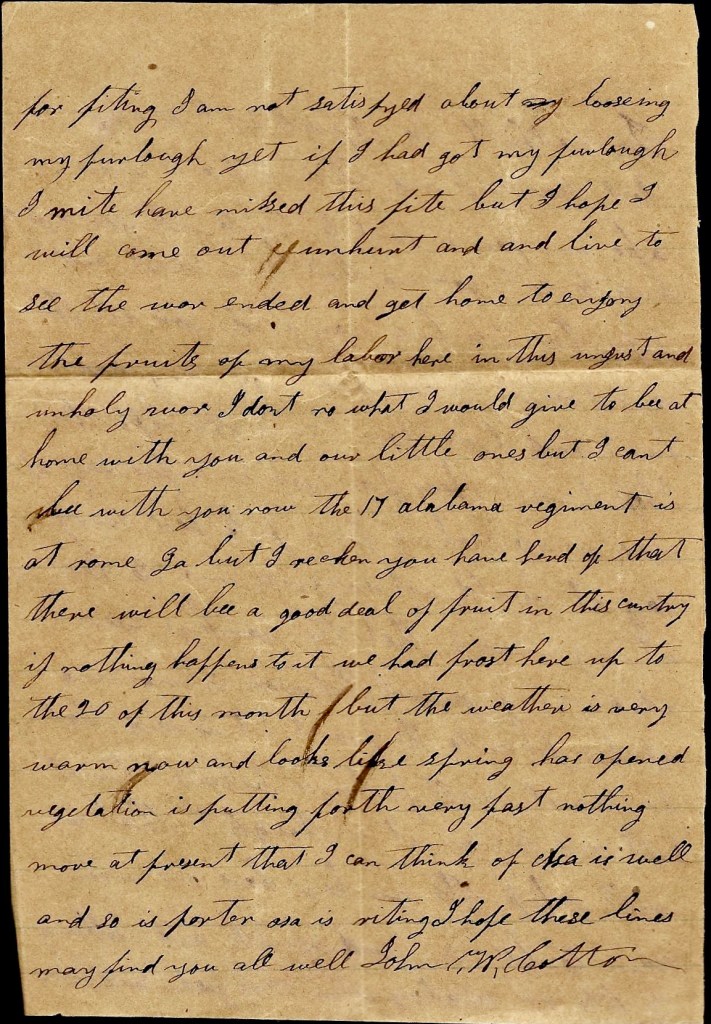 for fiting I am not satisfyed about my looseing
my furlough yet if I had got my furlough
I mite have missed this fite but I hope I
will come out unhurt and and live to
see the wor ended and get home to enjoy
the fruits of my labor here in this unjust and
unholy wor I dont no what I would give to bee at
home with you and our little ones but I cant
bee with you now the 17 alabama regiment is
at rome ga but I recken you have herd of that
there will bee a good deal of fruit in this cuntry
if nothing happens to it we had frost here up to
the 20 of this month but the weather is very
warm now and looks like spring has opened
vegetation is putting forth very fast nothing
more at present that I can think of asa is well
and so is porter asa is riting I hope these lines
may find you all well John W. Cotton